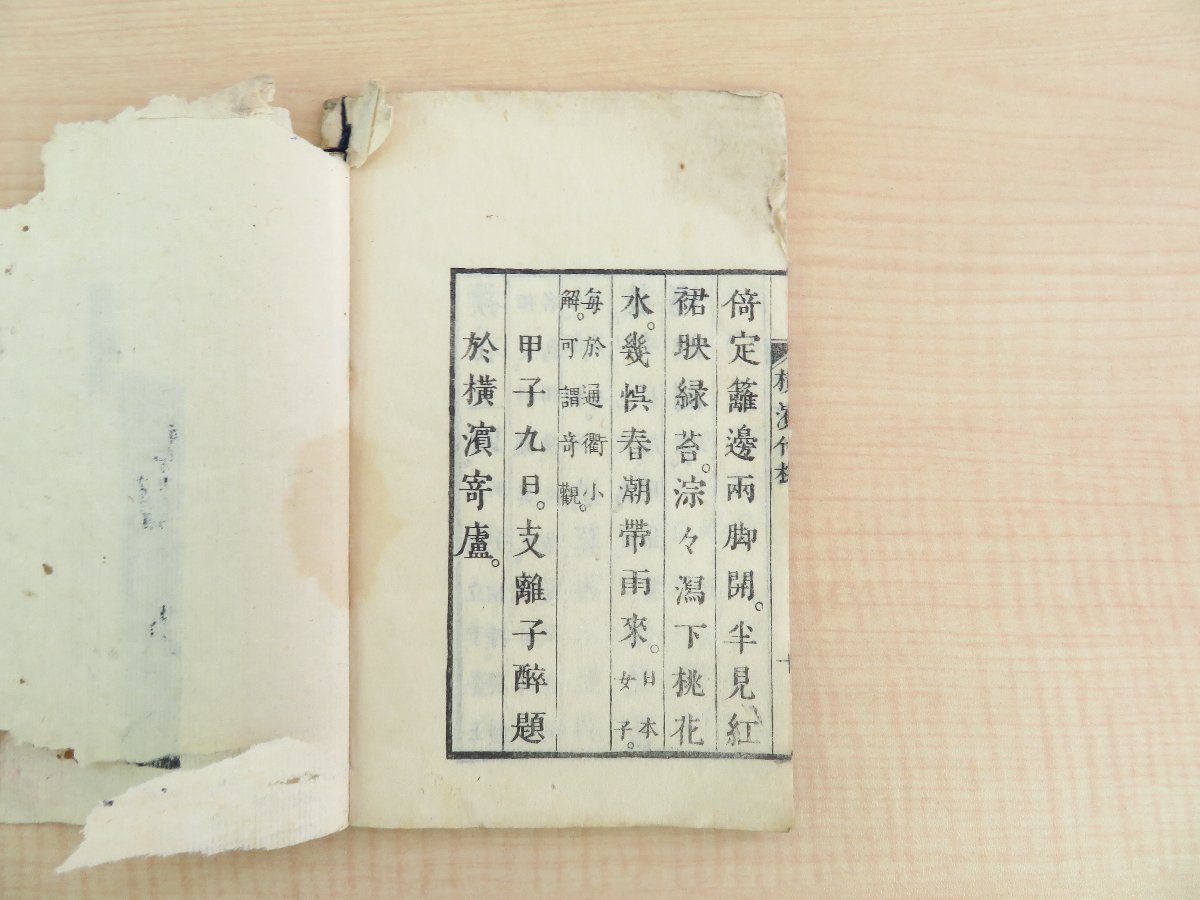 倚定籬邊兩脚開。半見紅
裙映緑苔。淙々瀉下桃花
水。幾悞春潮帶雨來。日本
女子。
每於通衢小
解。可謂奇觀。
甲子九日。支離子醉題
於橫濱寄廬。
橫濱竹枝